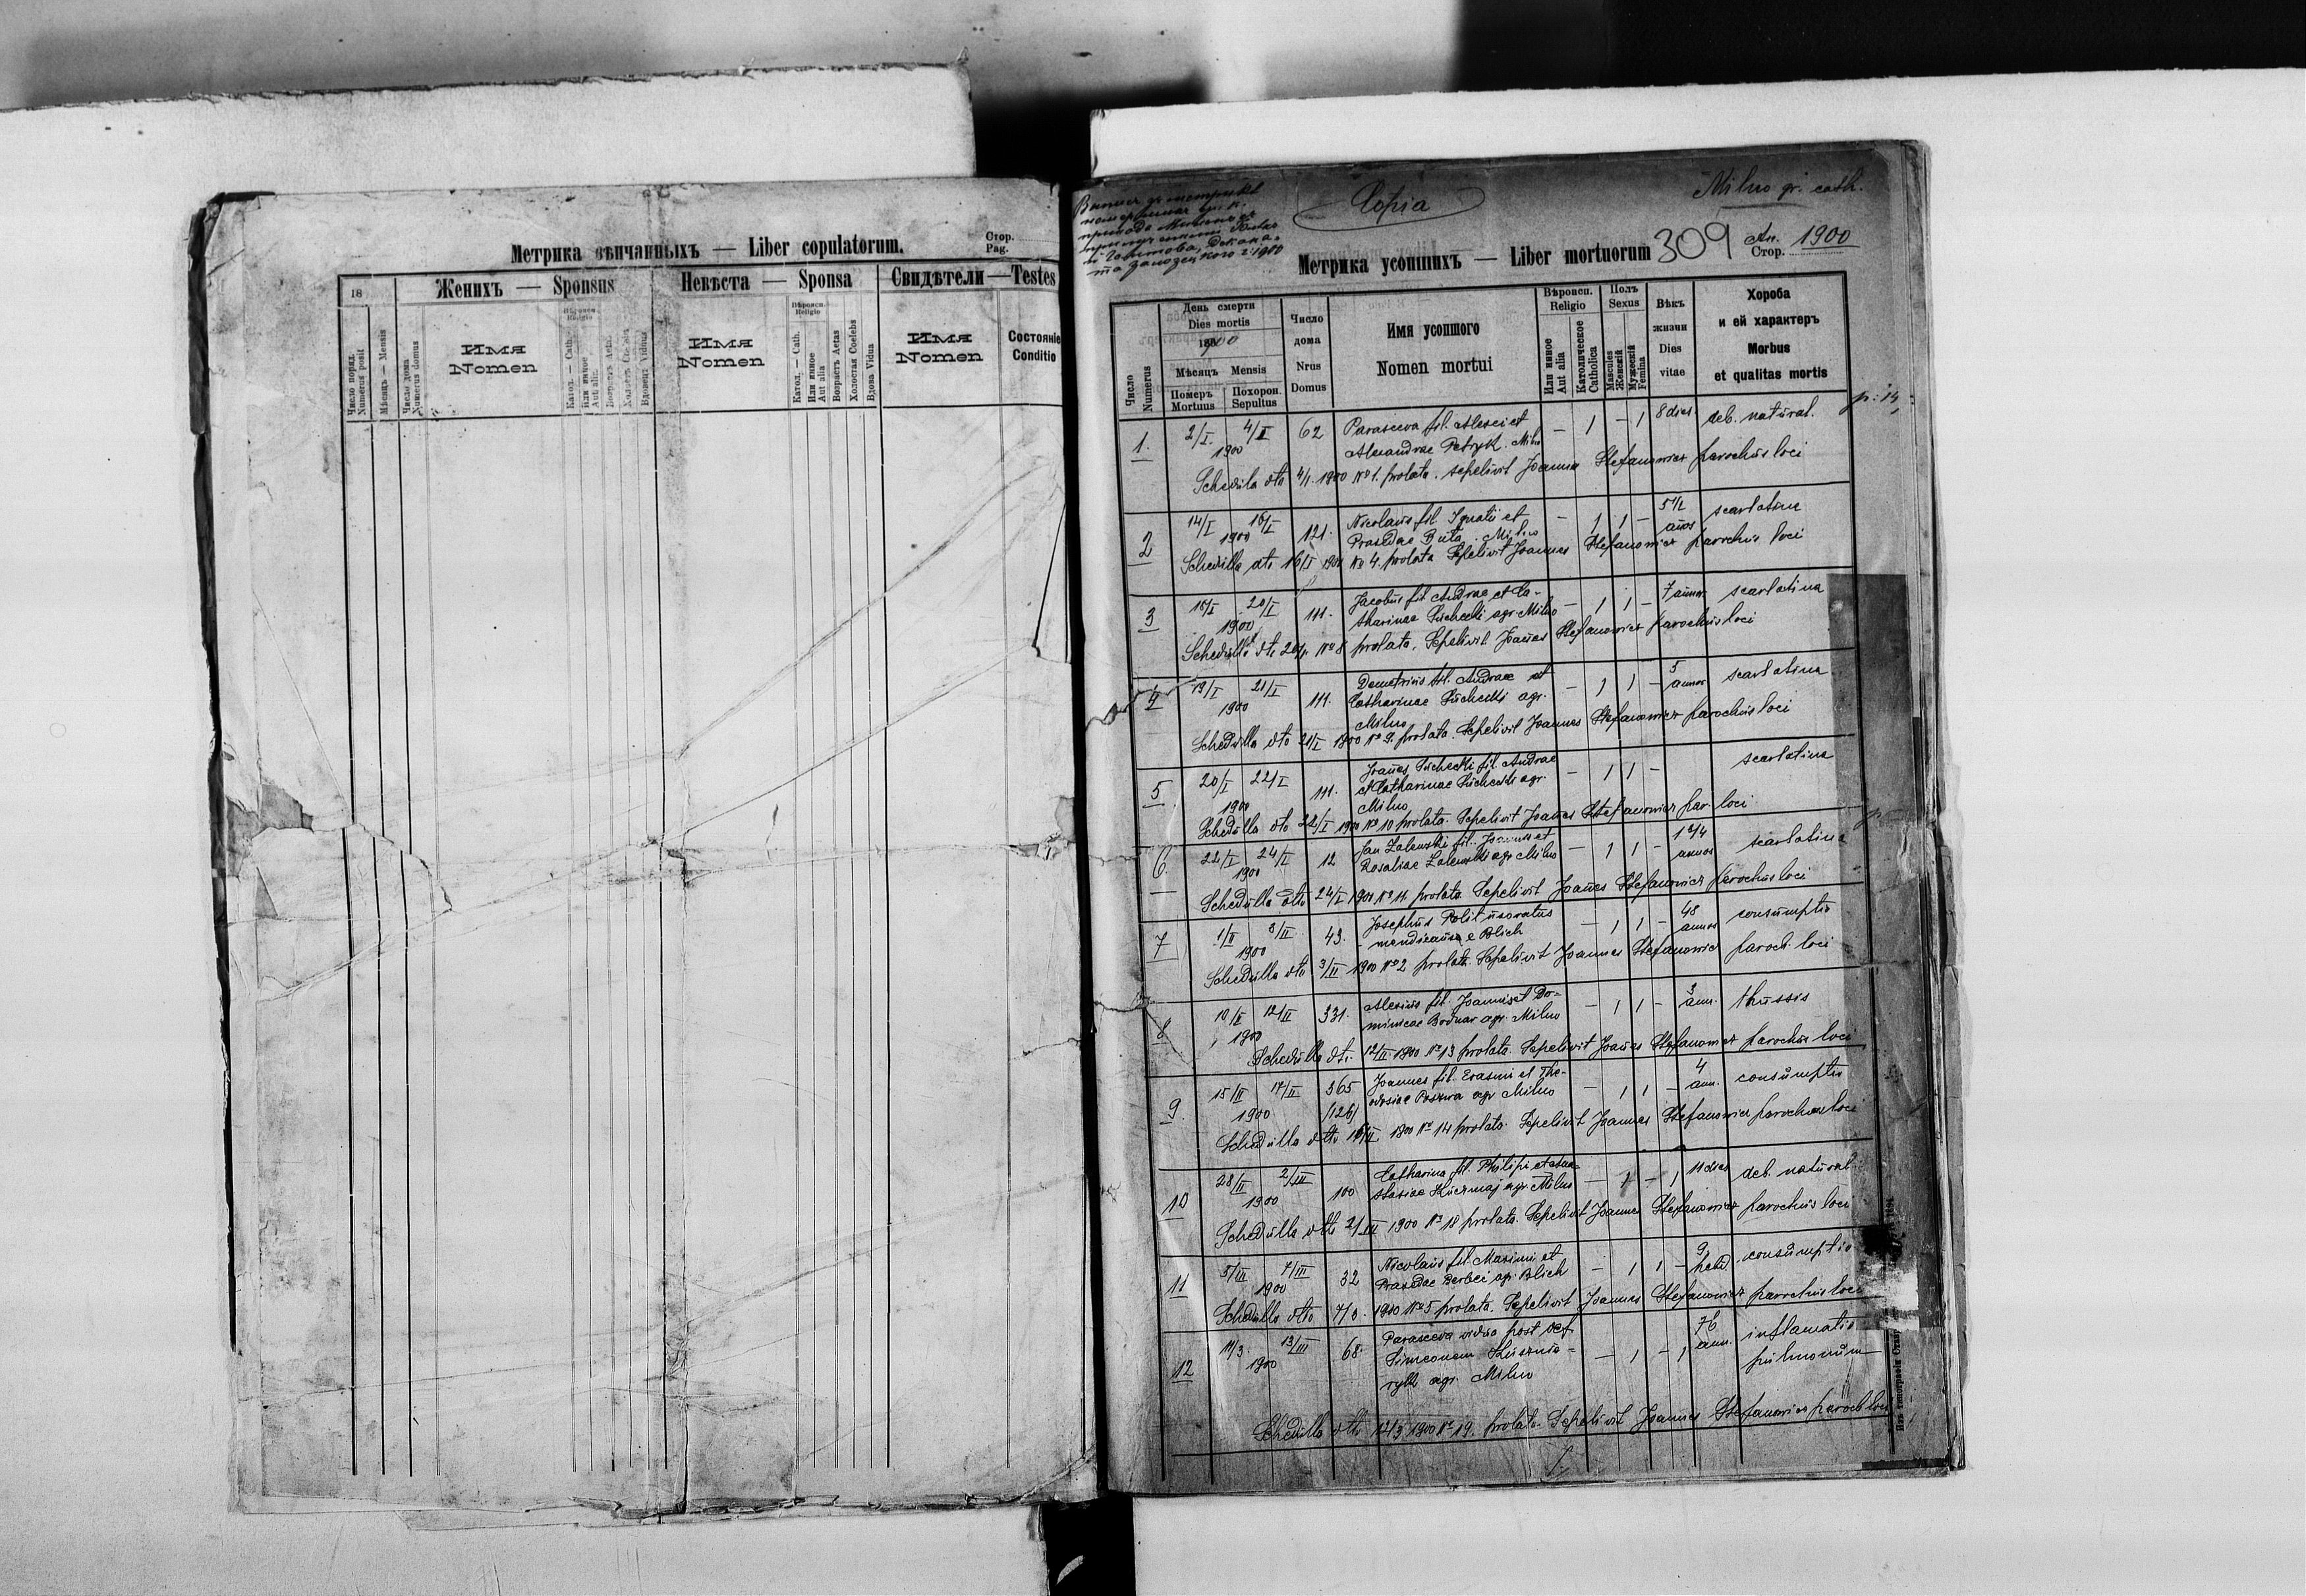 Метрика вѣнчанныхъ — Liber copulatorum.
Стор.
Pag.
18
Женихъ — Sponsus
Невѣста — Sponsa
Свидѣтели — Testes
Число поряд.
Numerus posit
Мѣсяцъ — Mensis
Число дома
Numerus domus
Имя
Nomen
Вѣроисп.
Religio
Катол. — Cath.
Или иное
Aut alia
Имя
Nomen
Вѣроисп.
Religio
Катол. — Cath.
Или иное
Aut alia
Возрастъ Aetas
Холостая Coelebs
Вдова Vidua
Имя
Nomen
Состояніе
Conditio
Copia
Milno gr. cath.
Метрика усопшихъ — Liber mortuorum 309
An.
Стор. 1900
Число
Numerus
День смерти
Dies mortis
1900
Мѣсяцъ Mensis
Померъ
Mortuus
Похорон.
Sepultus
Число
дома
Nrus
Domus
Имя усопшого
Nomen mortui
Вѣроисп.
Religio
Или инное
Aut alia
Католическое
Catholica
Полъ
Sexus
Mascules
Женскій
Мужескій
Femina
Вѣкъ
жизни
Dies
vitae
Хороба
и ей характеръ
Morbus
et qualitas mortis
p: 14
1. 2/I 4/I 1900 62 Parasceva fil. Alexei et
Alexandrae Petryk. Milno — 1 — 1 8 dies deb. natural.
Schedula dto 4/1. 1900 No 1. prolata. sepelivit Joannes Stefanowicz parochus loci
2 14/I 16/I 1900 121. Nicolaus fil. Ignatii et
Praxedae Buta. Milno — 1 1 — 5 1/2 anos scarlatina
Schedulla dto 16/I 1900 No 4. prolata Sepelivit Joannes Stefanowicz parochus loci
3 18/I 20/I 1900 111. Jacobus fil Andrae et Ca-
tharinae Suchecki agr. Milno — 1 1 — 7 annor scarlatina
Schedulla dto 20/I No 8 prolata. Sepelivit Joanes Stefanowicz parochus loci
4 19/I 21/I 1900 111. Demetrius fil. Andrae et
Catharinae Suchecki agr.
Milno — 1 1 — 5 annor scarlatina
Schedulla dto 21/I 1900 No 9. prolata. Sepelivit Joannes Stefanowicz parochus loci
5 20/I 22/I 1900 111. Joanes Suchecki fil. Andrae
et Catharinae Suchecki agr.
Milno — 1 1 — scarlatina
Schedulla dto 22/I 1900 No 10 prolata. Sepelivit Joanes Stefanowicz par. loci
6. 22/I 24/I 1900 12 Jan Zalewski fil. Joannes et
Rosaliae Zalewski agr Milno — 1 1 — annos scarlatina
Schedulla dto 24/I 1900 No 11 prolata. Sepelivit Joanes Stefanowicz parochus loci
7 1/II 3/II 1900 43. Josephus Polit uxoratus
mendicans e Blich — 1 1 — 48 annos consumptio
Schedulla dto 3/II 1900 No 2 prolata. Sepelivit Joannes Stefanowicz paroch. loci
8 10/II 12/II 1900 331. Alexius fil. Joannis et Do-
minicae Bodnar agr. Milno — 1 1 — 3 ann. thussis
Schedulla dto. 12/II 1900 No 13 prolata. Sepelivit Joanes Stefanowicz parochus loci
9. 15/II 17/II 1900 365
/126/ Joannes fil. Erasmi et The-
odosiae Poszwa agr Milno — 1 1 — 4 ann. consumptio
Schedulla dtto 16/II 1900 No 14 prolata. Sepelivit Joannes Stefanowicz parochus loci
10 28/II 2/III 1900 100 Catharina fil. Philipi et Ana-
stasiae Kuczmaj agr. Milno — 1 — 1 11 dies deb. natural.
Schedulla dtto 2/III 1900 No 18 prolata. Sepelivit Joannes Stefanowicz parochus loci
11 5/III 7/III 1900 32 Nicolaus fil Maximi et
Praxedae Derbei agr. Blich — 1 1 — 9 hebd consumptio
Schedulla dtto 7/3. 1900 No 5 prolata. Sepelivit Joannes Stefanowicz parochus loci
12 11/3. 13/III 1900 68. Parasceva vidua post def
Simeonem Kusznie-
ryk agr. Milno — 1 — 1 76 ann. inflamatio
pulmonum
Schedulla dtto 12/3 1900 No 19. prolata. Sepelivit Joannes Stefanowicz paroch loci